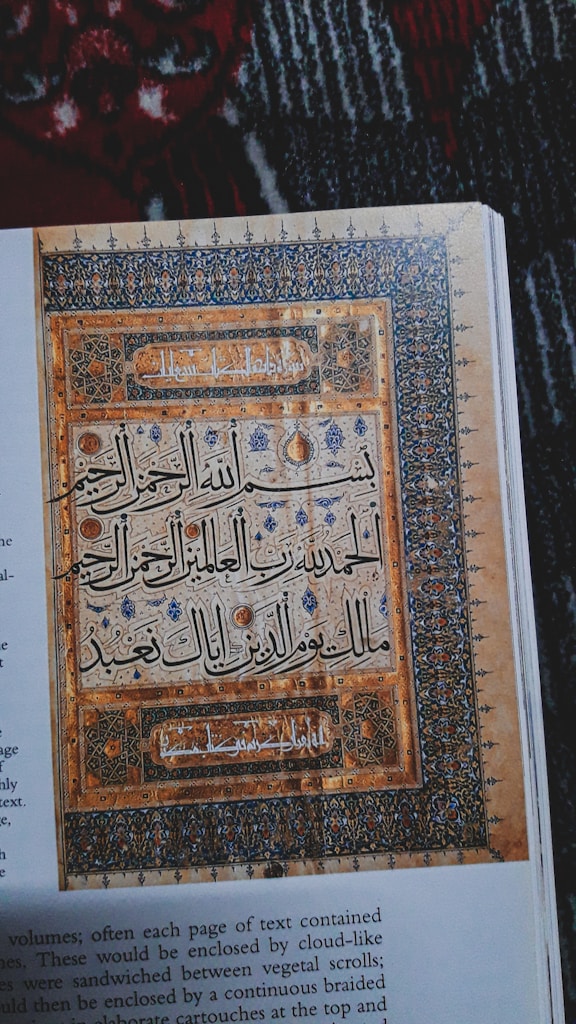 بِسْمِ اللَّهِ الرَّحْمَنِ الرَّحِيمِ
الْحَمْدُ لِلَّهِ رَبِّ الْعَالَمِينَ الرَّحْمَنِ الرَّحِيمِ
مَالِكِ يَوْمِ الدِّينِ إِيَّاكَ نَعْبُدُ
he
al-
e
t
age
f
hly
text.
e,
h
e
volumes; often each page of text contained
nes. These would be enclosed by cloud-like
es were sandwiched between vegetal scrolls;
uld then be enclosed by a continuous braided
in elaborate cartouches at the top and